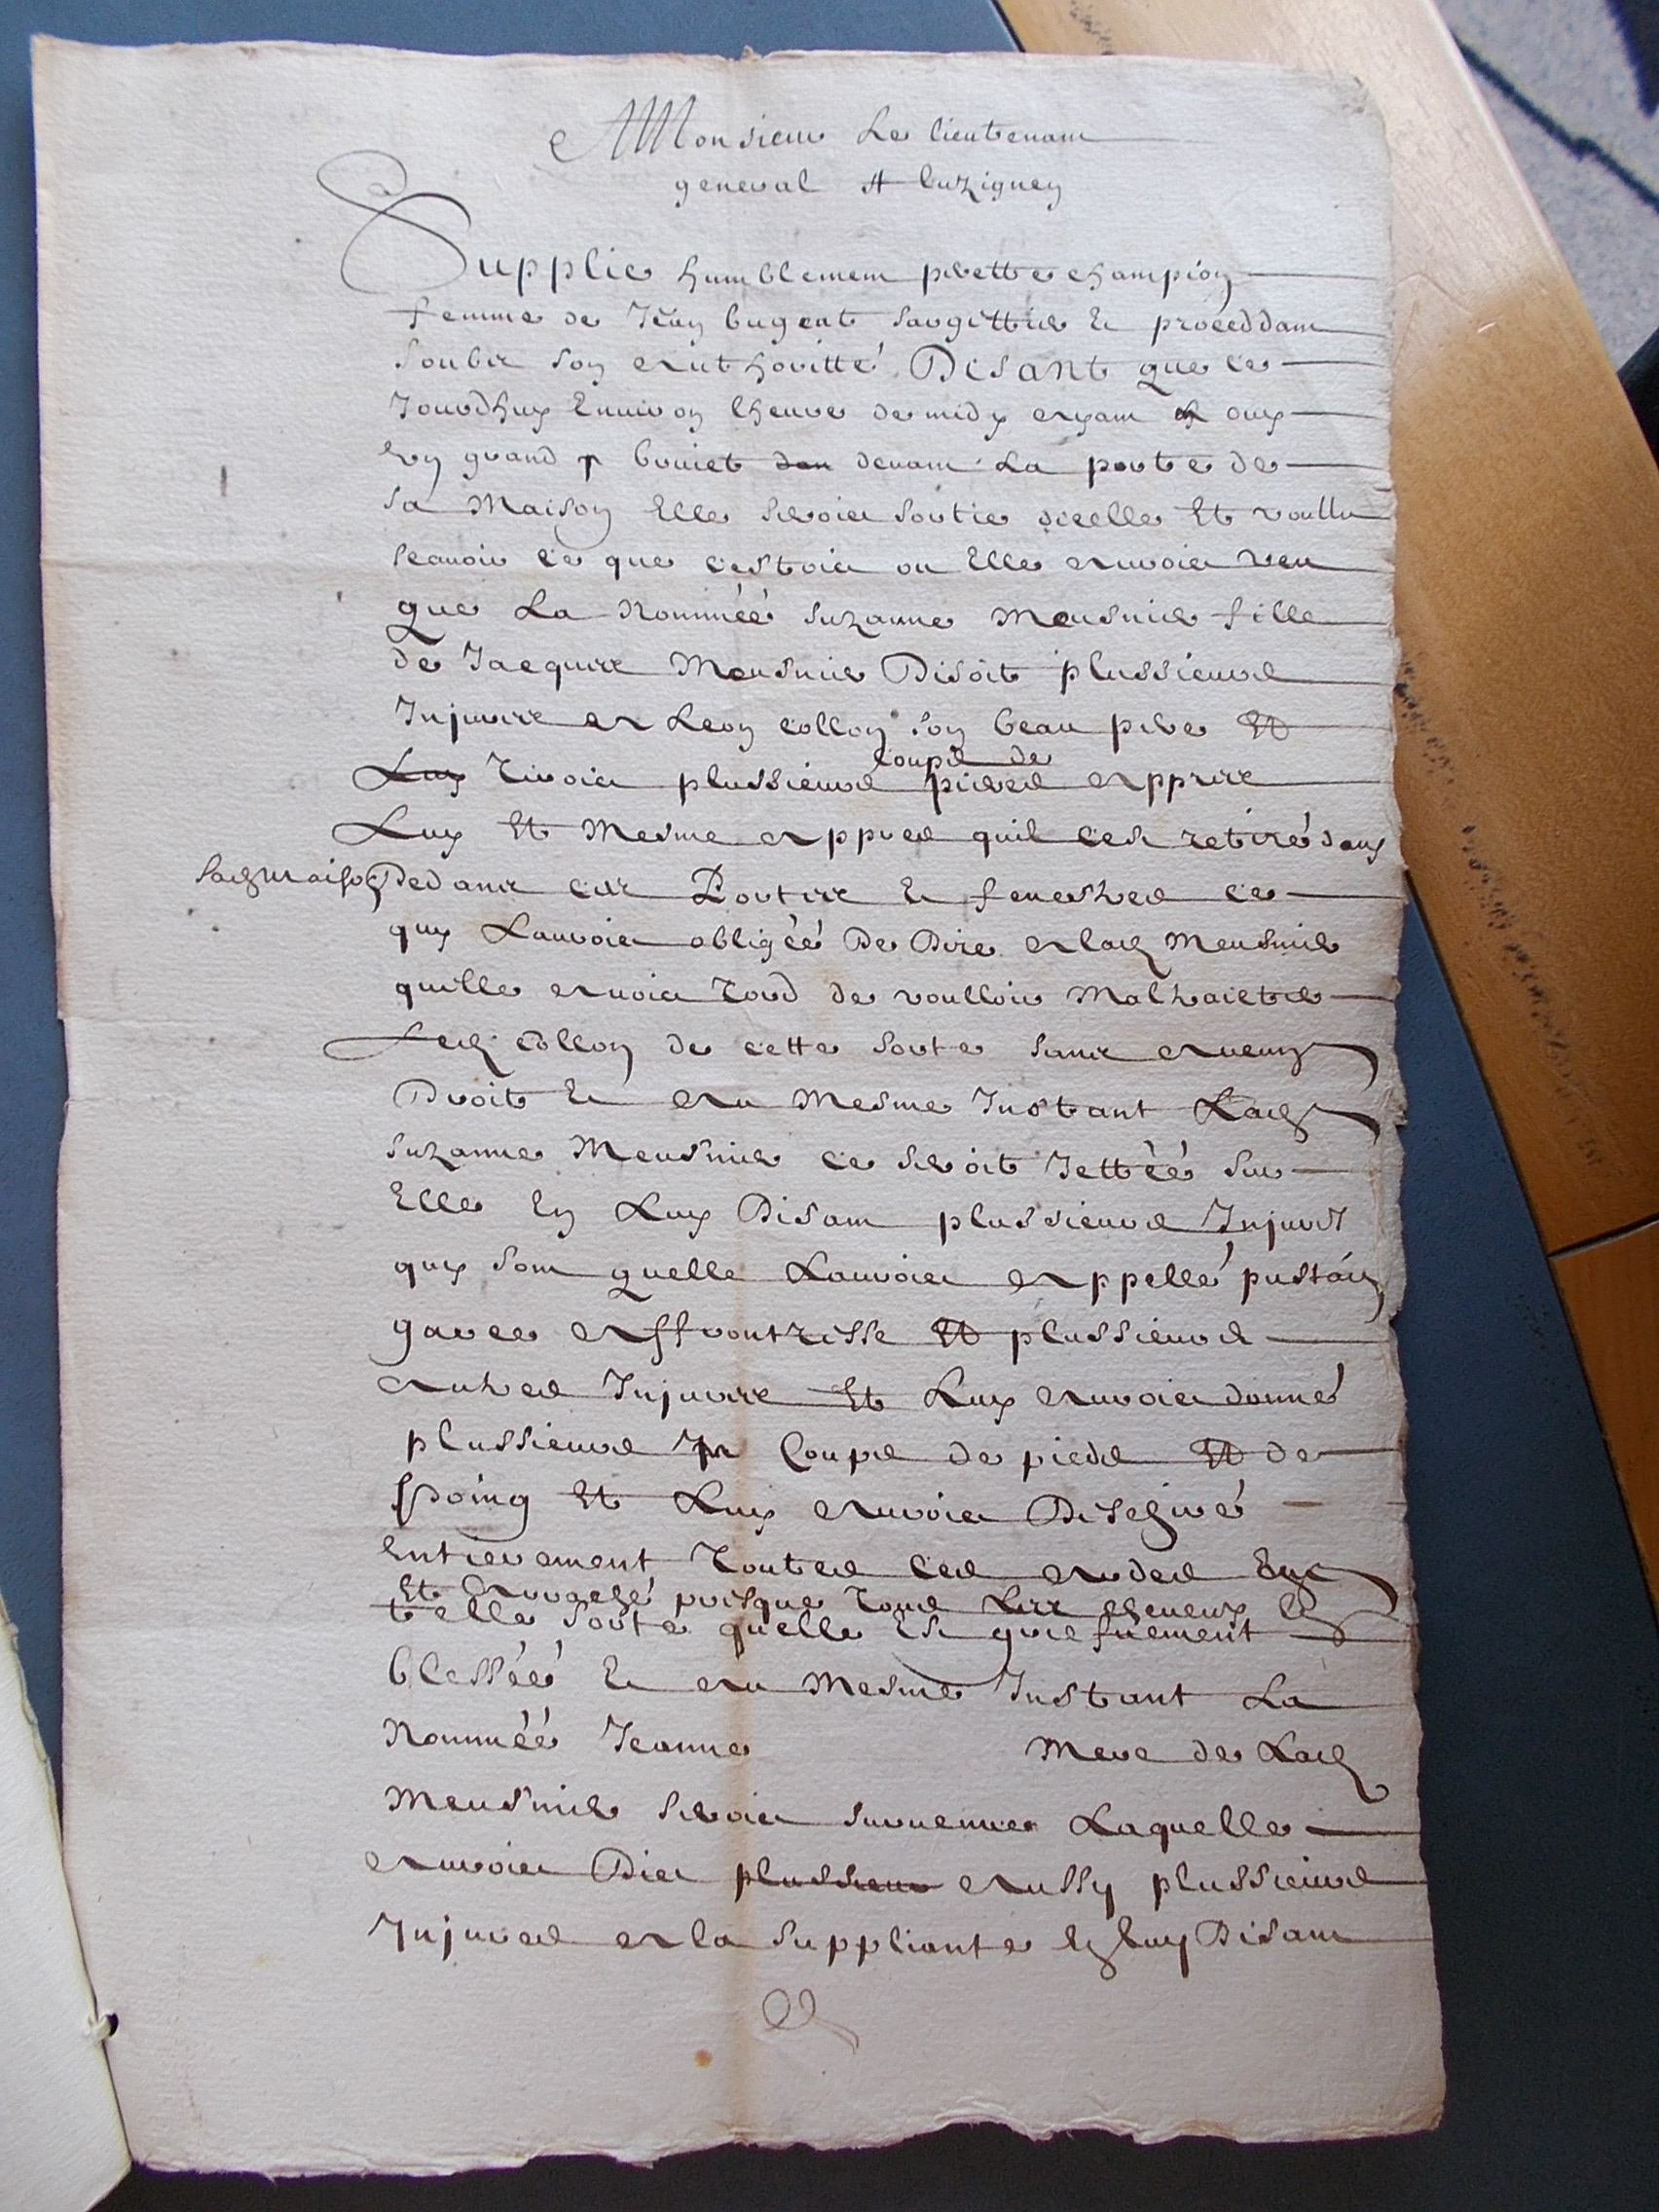 A Monsieur Le lieutenant
general A luzignen
Supplie humblement perette champion
femme de Jean bugent sargettier et proceddant
soubz son authoritté Disant que ce
Jourdhuy Environ lheure de midy ayant ouy
un grand bruiet devant La porte de
sa Maison Elle seroit sortie dicelle Et voullu
scavoir ce que cestoit ou Elle auroit veu
que La Nommée Suzanne Meusnier fille
de Jacques Meusnier Disoit plussieurs
Injures a Leon collon son beau pere Et
Luy tiroit plussieurs coups de pierres appres
Luy Et Mesme appres quil cest retiré dans
sa maison Dedans ces Portes et fenestres ce
quy Lauroit obligéé De Dire a lad Meusnier
quelle avoit tord de voulloir Maltraicter
led collon de cette sorte sans aucun
Droit et au Mesme Instant Lad
Suzanne Meusnier ce seroit Jettéé sur
Elle En Luy Disant plussieurs Injures
quy sont quelle Lauroit appellé pustain
garce affrontisse Et plussieurs
autres Injures Et Luy auroit donné
plussieurs coups de pieds Et de
poing Et Luy auroit Deschiré
entierement touttes ces
Et Arraché presque tous Les cheveux En
telle sorte quelle Est griefuement
blesséé Et au Mesme Instant La
Nomméé Jeanne Mere de Lad
Meusnier seroit survenue Laquelle
auroit Dict plussieurs aussy plussieurs
Injures a la suppliante En luy Disant